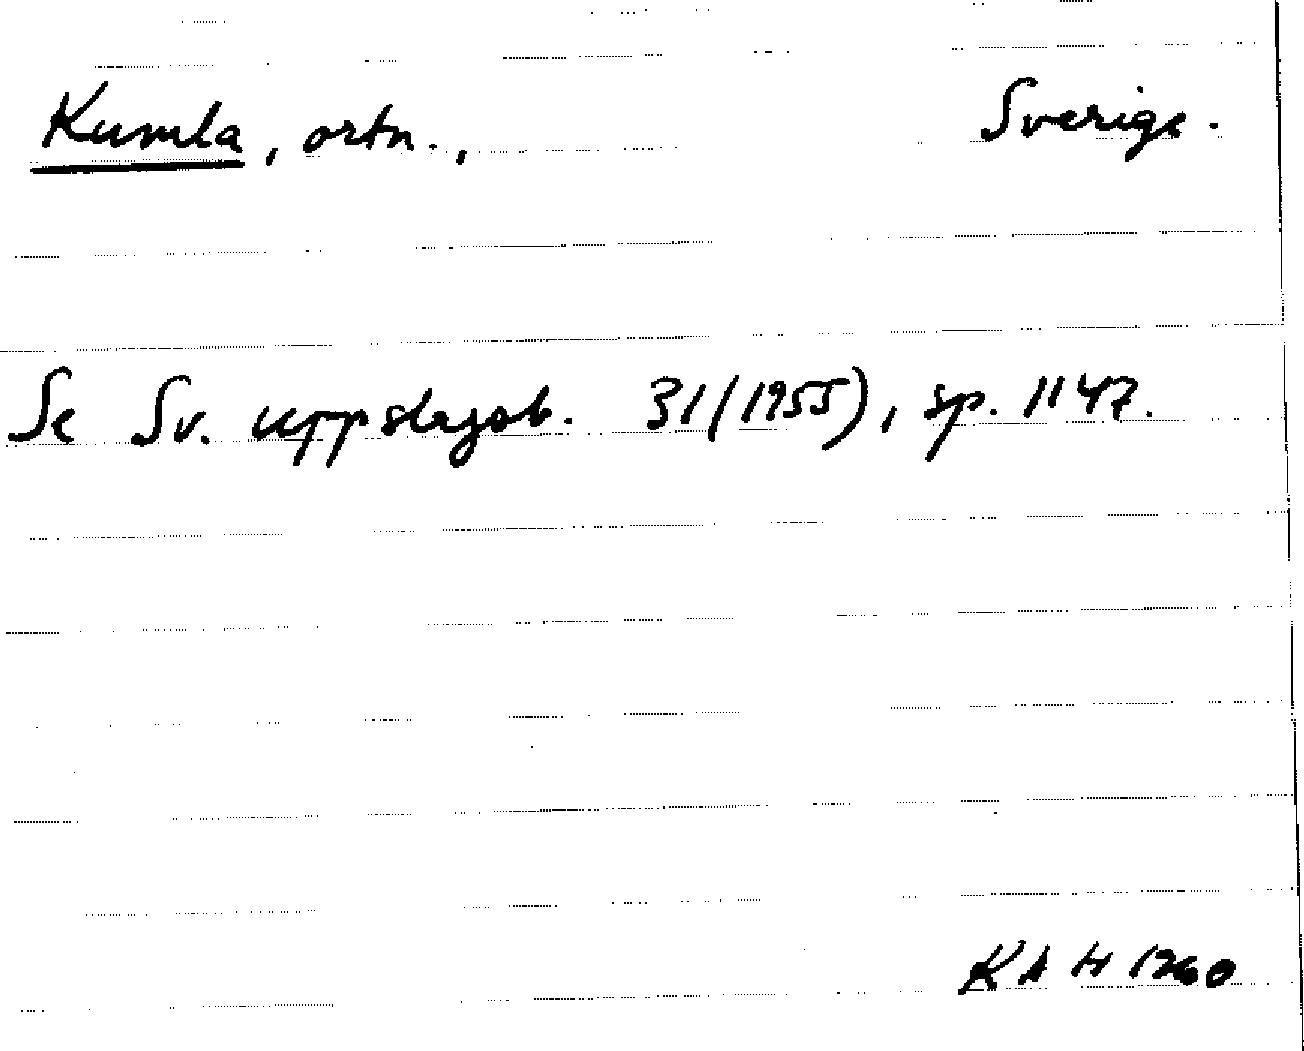 Kumla, ortn., Sverige.
Se Sv. uppslagsb. 31 (1955), sp. 1147.
KAH 1260